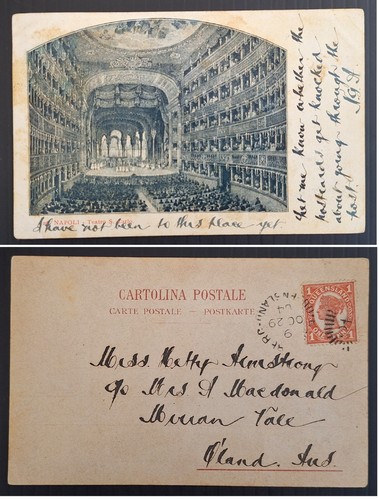 NAPOLI - Teatro S. Carlo
I have not been to this place yet
Let me know whether the
postcards get knocked
about going through the
post.
CARTOLINA POSTALE
CARTE POSTALE — POSTKARTE
QUEENSLAND
1 1
ONE PENNY
9
OC 29
04
Miss Hetty Armstrong
c/o Mrs D Macdonald
Mirian Vale
Q'land. Aus.